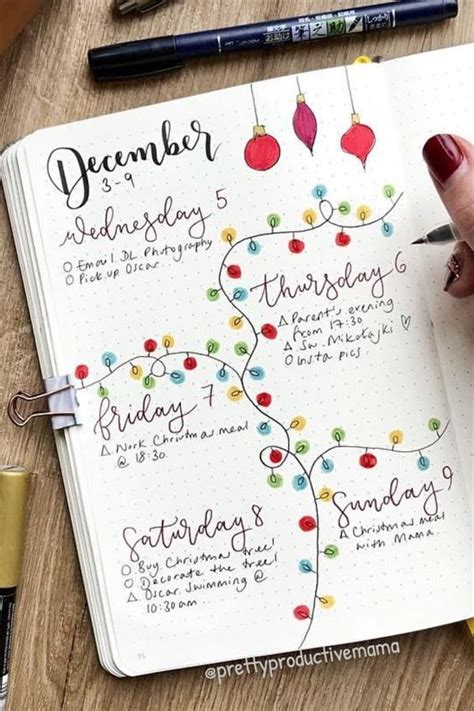 December
3-9
Wednesday 5
O Email. DL Photography
O Pick up Oscar.
Thursday 6
△ Parent's evening
from 17:30
△ Św. Mikołajki ♡
O Insta pics
Friday 7
△ Work Christmas meal
@ 18:30.
Saturday 8
O Buy Christmas tree!
O Decorate the tree!
△ Oscar swimming @
10:30am
Sunday 9
△ Christmas meal
with Mama.
75
@prettyproductivemama